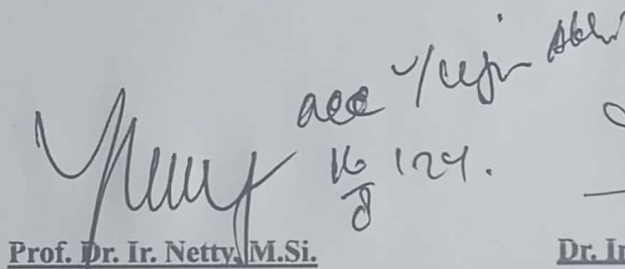 acc u/ ujin Akhi
16/8 124.
Prof. Dr. Ir. Netty, M.Si. Dr. Ir